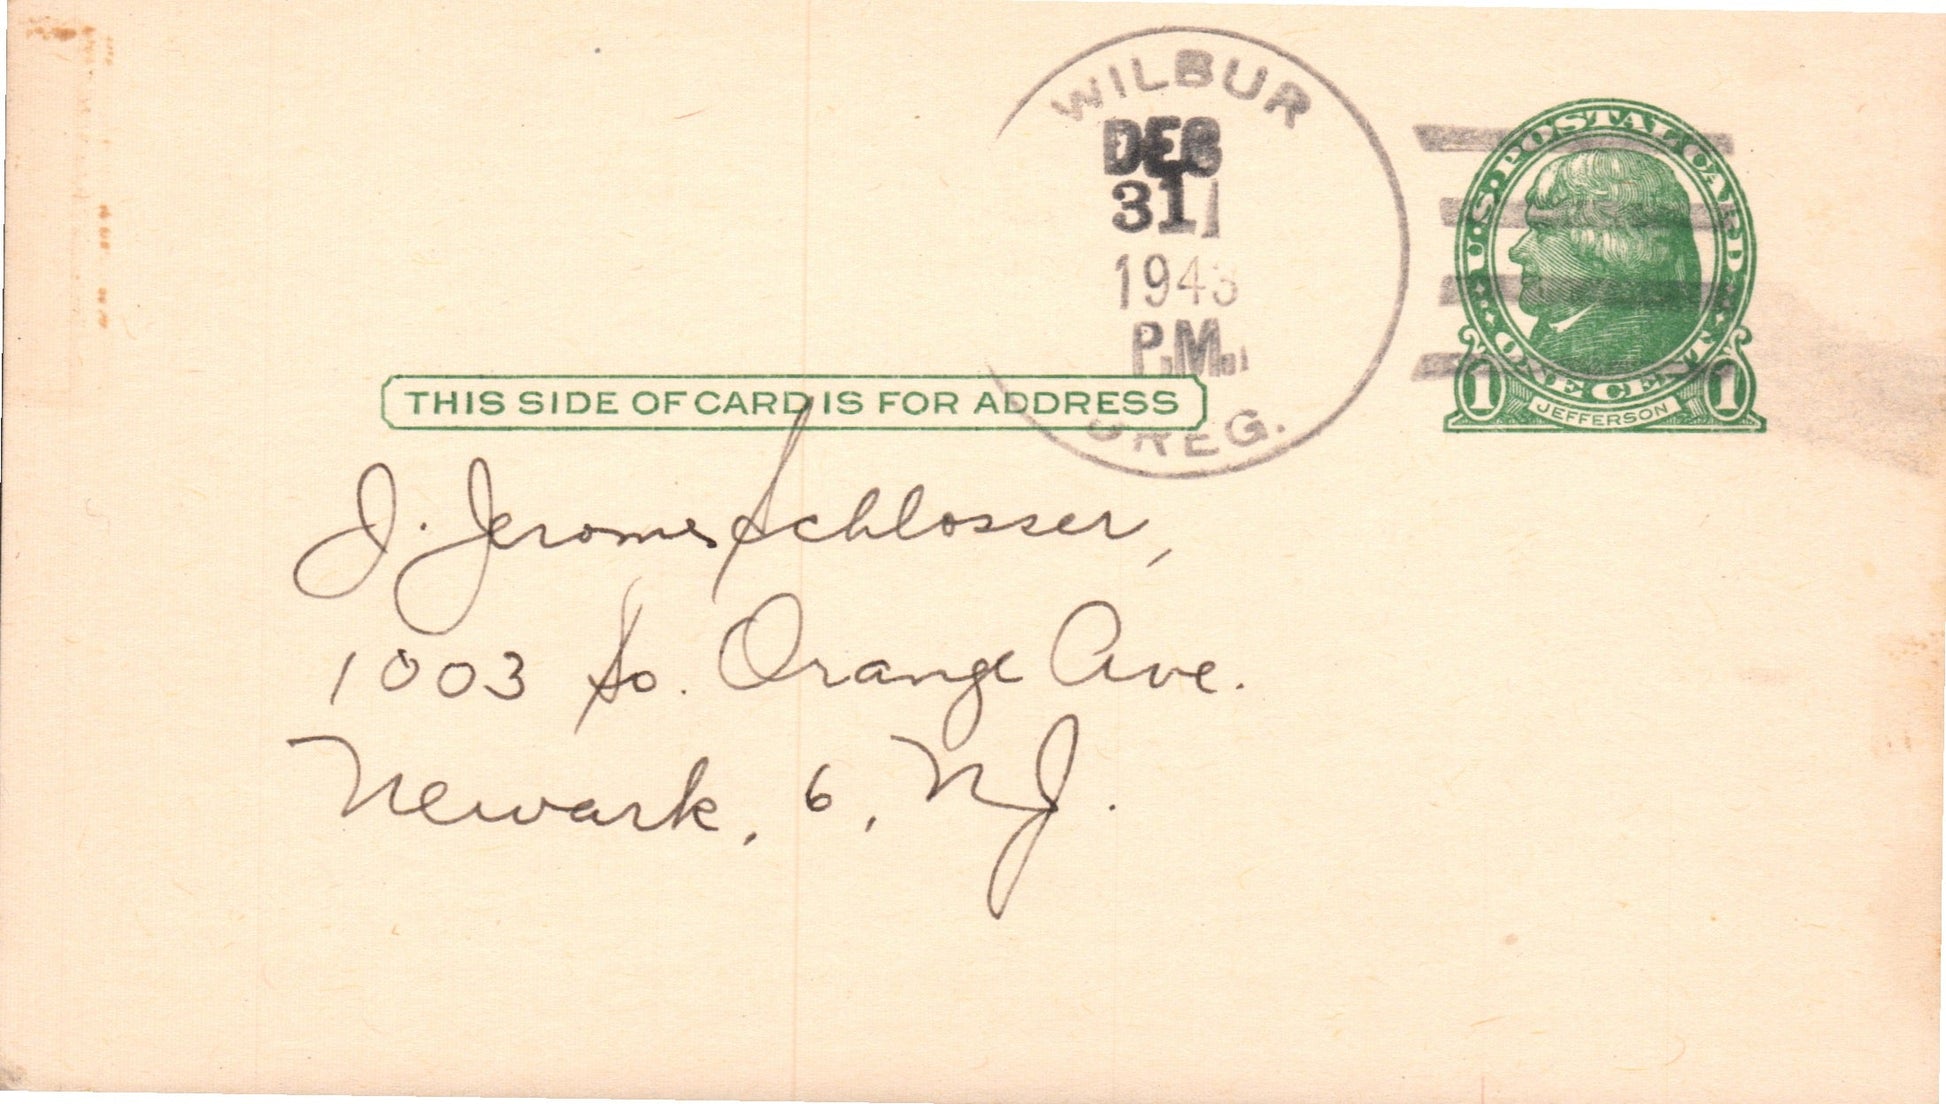 WILBUR
DEC
31
1943
P.M.
OREG.
U.S. POSTAL CARD
ONE CENT
1 JEFFERSON 1
THIS SIDE OF CARD IS FOR ADDRESS
J. Jerome Schlosser,
1003 So. Orange Ave.
Newark, 6, N J.